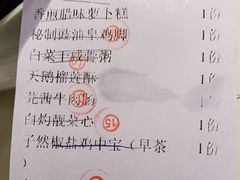 香煎腊味萝卜糕 1份
秘制豉油皇鸡脚 1份
白菜干咸骨粥 1份
天鹅榴莲酥 1份
芫茜牛肉肠 1份
白灼靓菜心 1份
孑然椒盐鸡中宝（早茶 1份
）
15